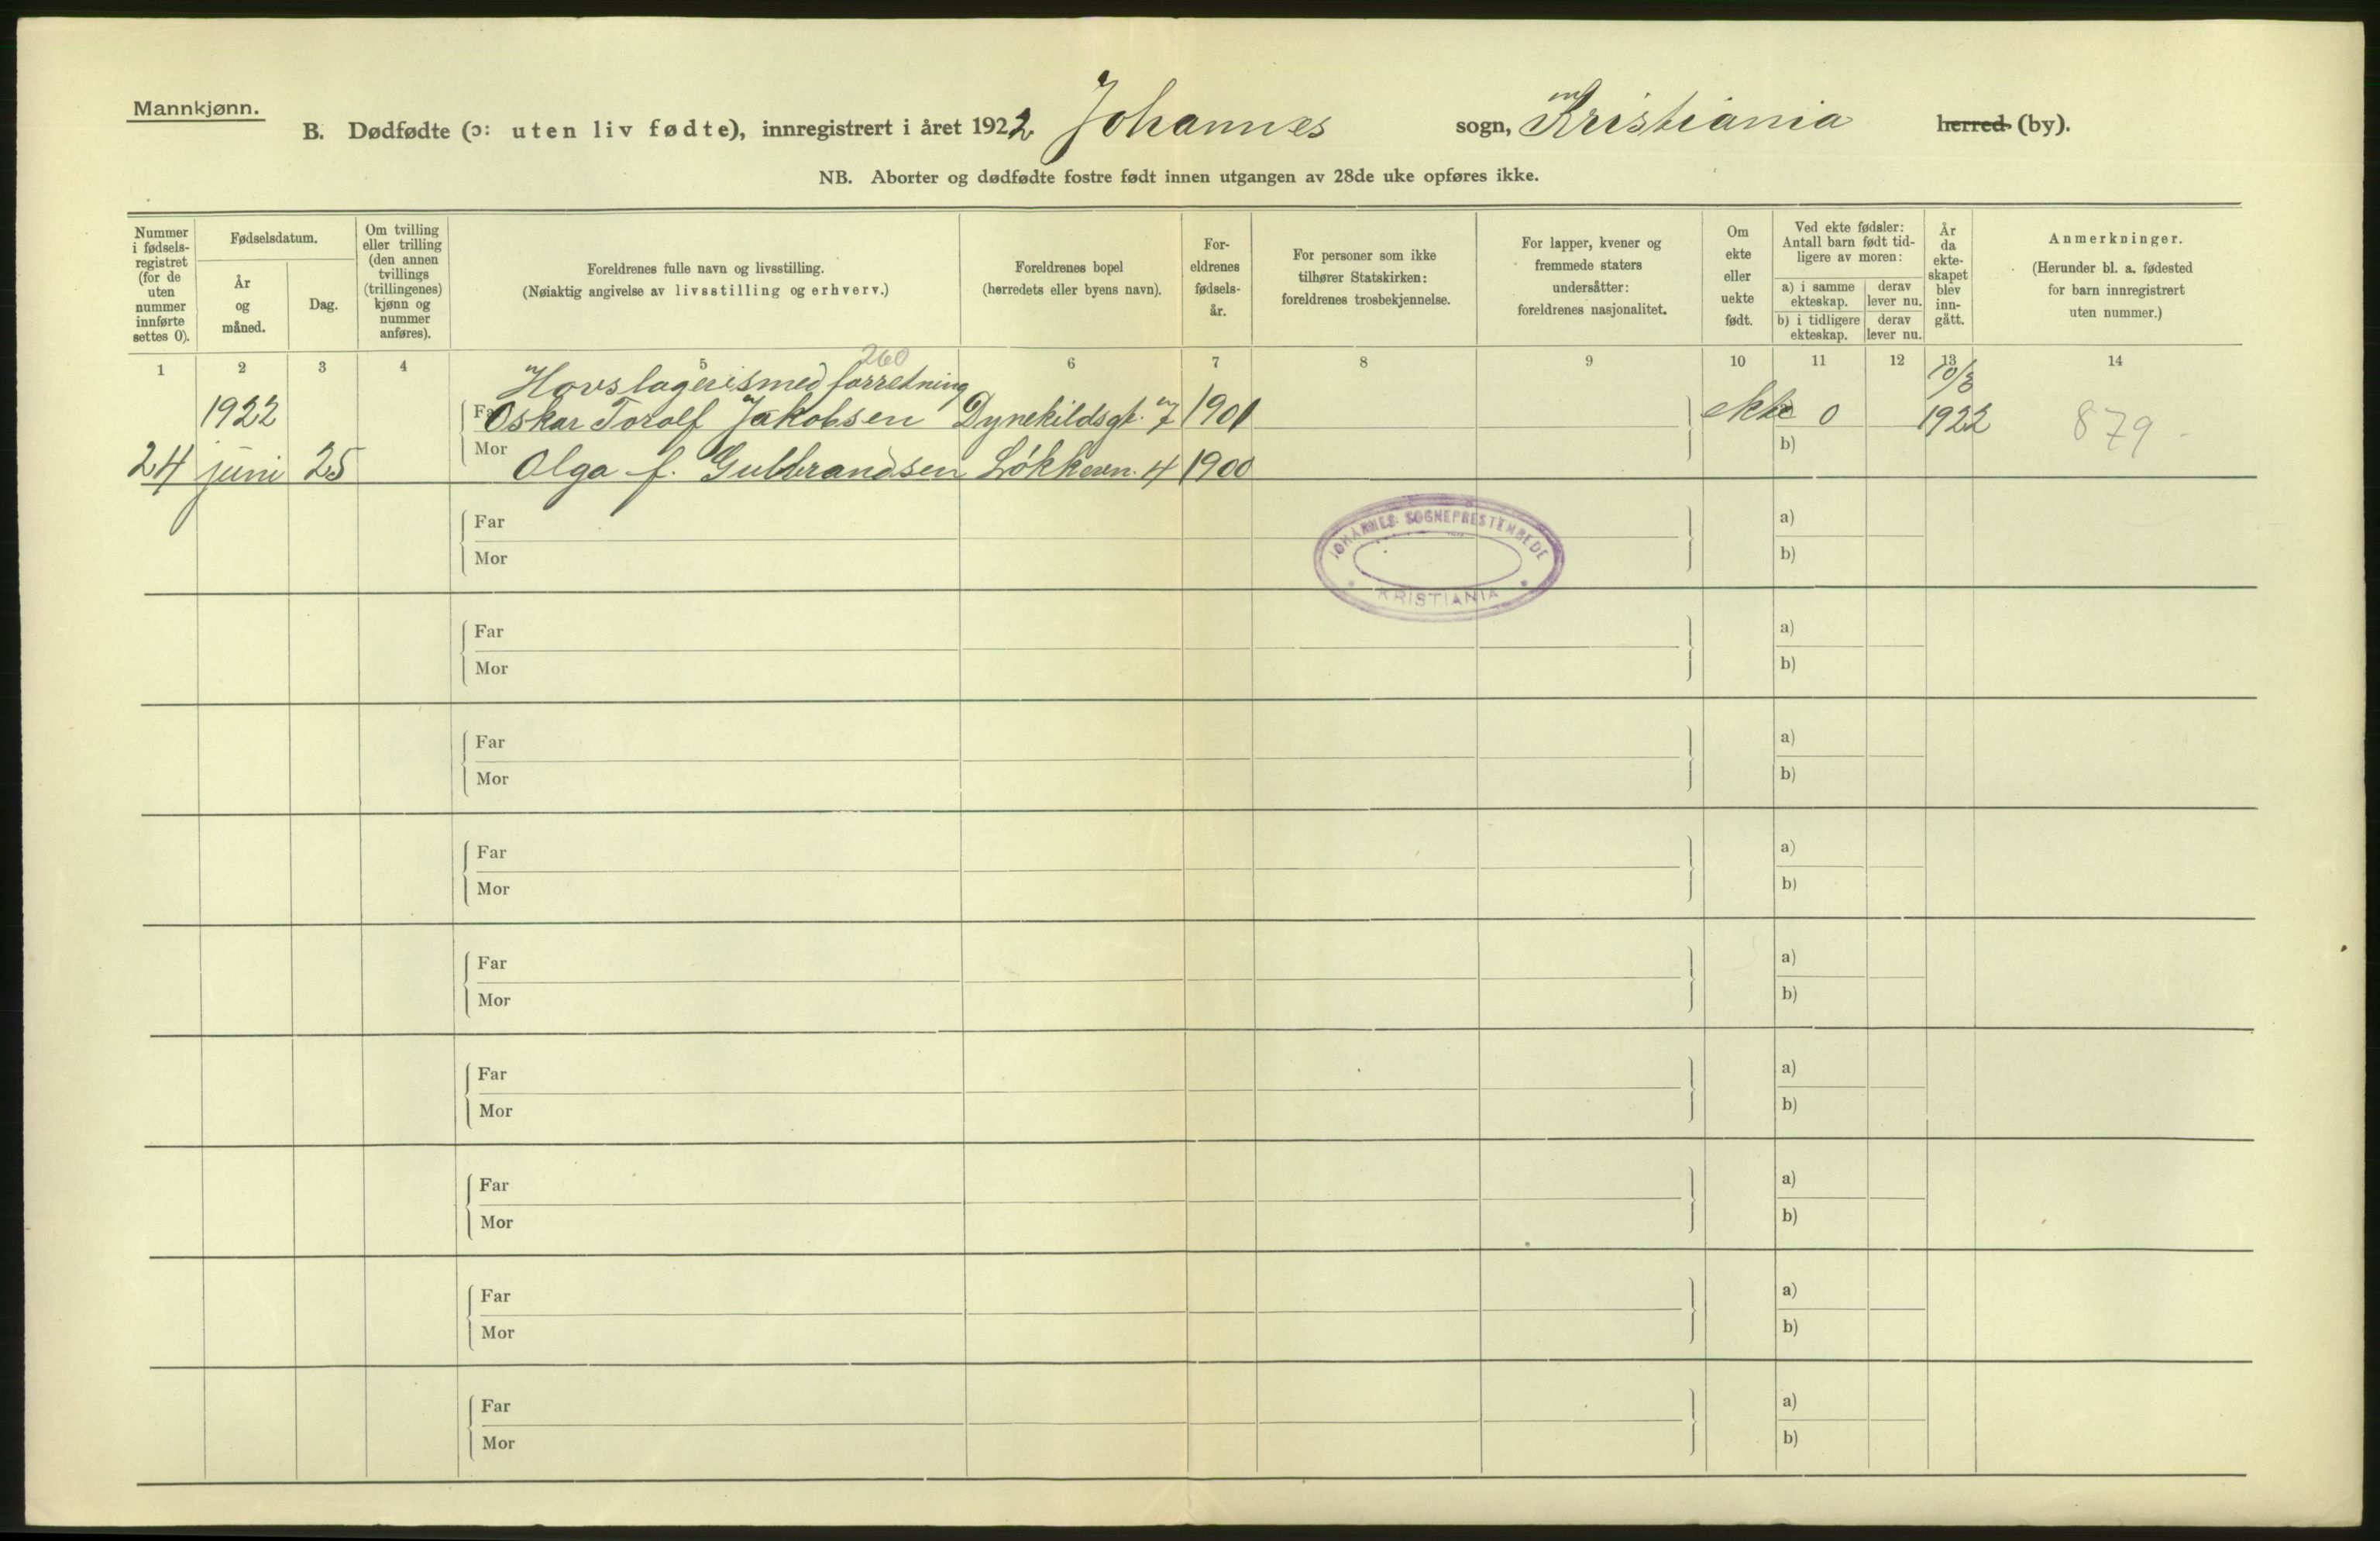 Mannkjønn.
B. Dødfødte (ɔ: uten liv fødte), innregistrert i året 1922 Johannes sogn, Kristiania herred (by).
NB. Aborter og dødfødte fostre født innen utgangen av 28de uke opføres ikke.
Nummer
i fødsels-
registret
(for de
uten
nummer
innførte
settes 0).
Fødselsdatum.
År
og
måned.
Dag.
Om tvilling
eller trilling
(den annen
tvillings
(trillingenes)
kjønn og
nummer
anføres).
Foreldrenes fulle navn og livsstilling.
(Nøiaktig angivelse av livsstilling og erhverv.)
Foreldrenes bopel
(herredets eller byens navn).
For-
eldrenes
fødsels-
år.
For personer som ikke
tilhører Statskirken:
foreldrenes trosbekjennelse.
For lapper, kvener og
fremmede staters
undersåtter:
foreldrenes nasjonalitet.
Om
ekte
eller
uekte
født.
Ved ekte fødsler:
Antall barn født tid-
ligere av moren:
a) i samme
ekteskap.
derav
lever nu.
b) i tidligere
ekteskap.
derav
lever nu.
År
da
ekte-
skapet
blev
inn-
gått.
Anmerkninger.
(Herunder bl. a. fødested
for barn innregistrert
uten nummer.)
1 2 3 4 5 6 7 8 9 10 11 12 13 14
260
Hovslagerismedforretning 10/3
1922 Far Oskar Torolf Jakobsen Dynekildsgt. 7 1901 ekte 0 1922 879
24 juni 25 Mor Olga f. Gulbrandsen Løkkevn. 4 1900 b)
JOHANNES SOGNEPRESTEMBEDE
KRISTIANIA
Far a)
Mor b)
Far a)
Mor b)
Far a)
Mor b)
Far a)
Mor b)
Far a)
Mor b)
Far a)
Mor b)
Far a)
Mor b)
Far a)
Mor b)
Far a)
Mor b)